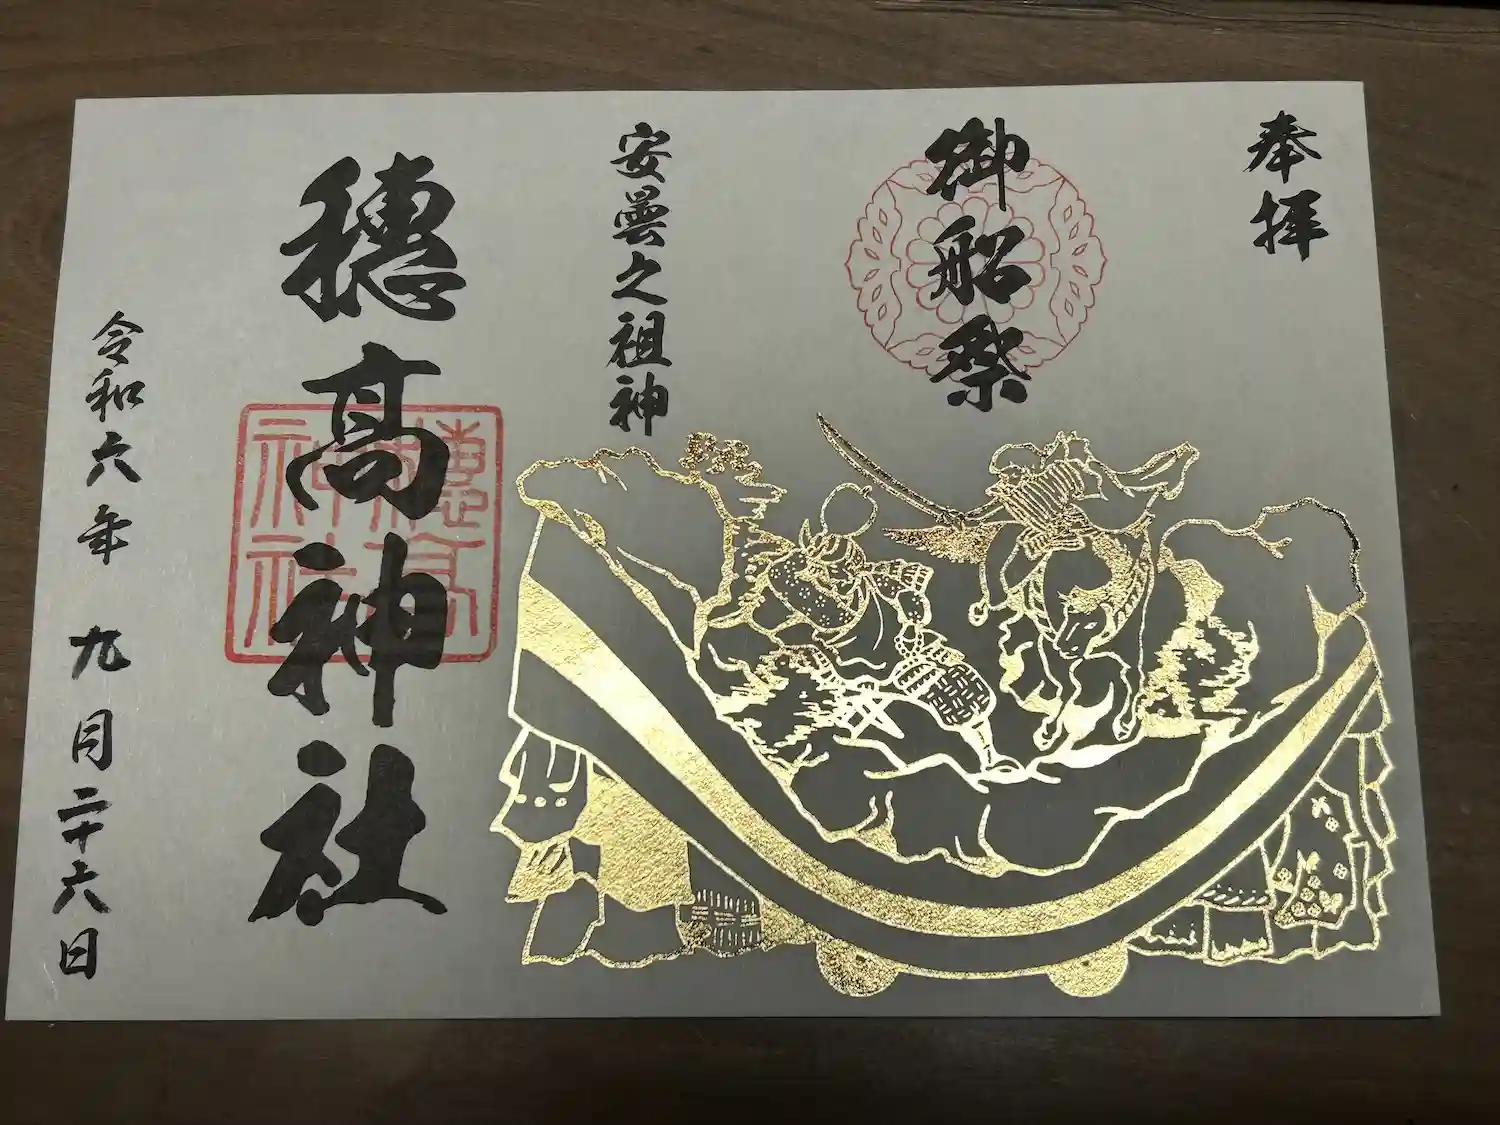 奉拝
御船祭
安曇之祖神
穂髙神社
穂髙神社
令和六年 九月二十六日